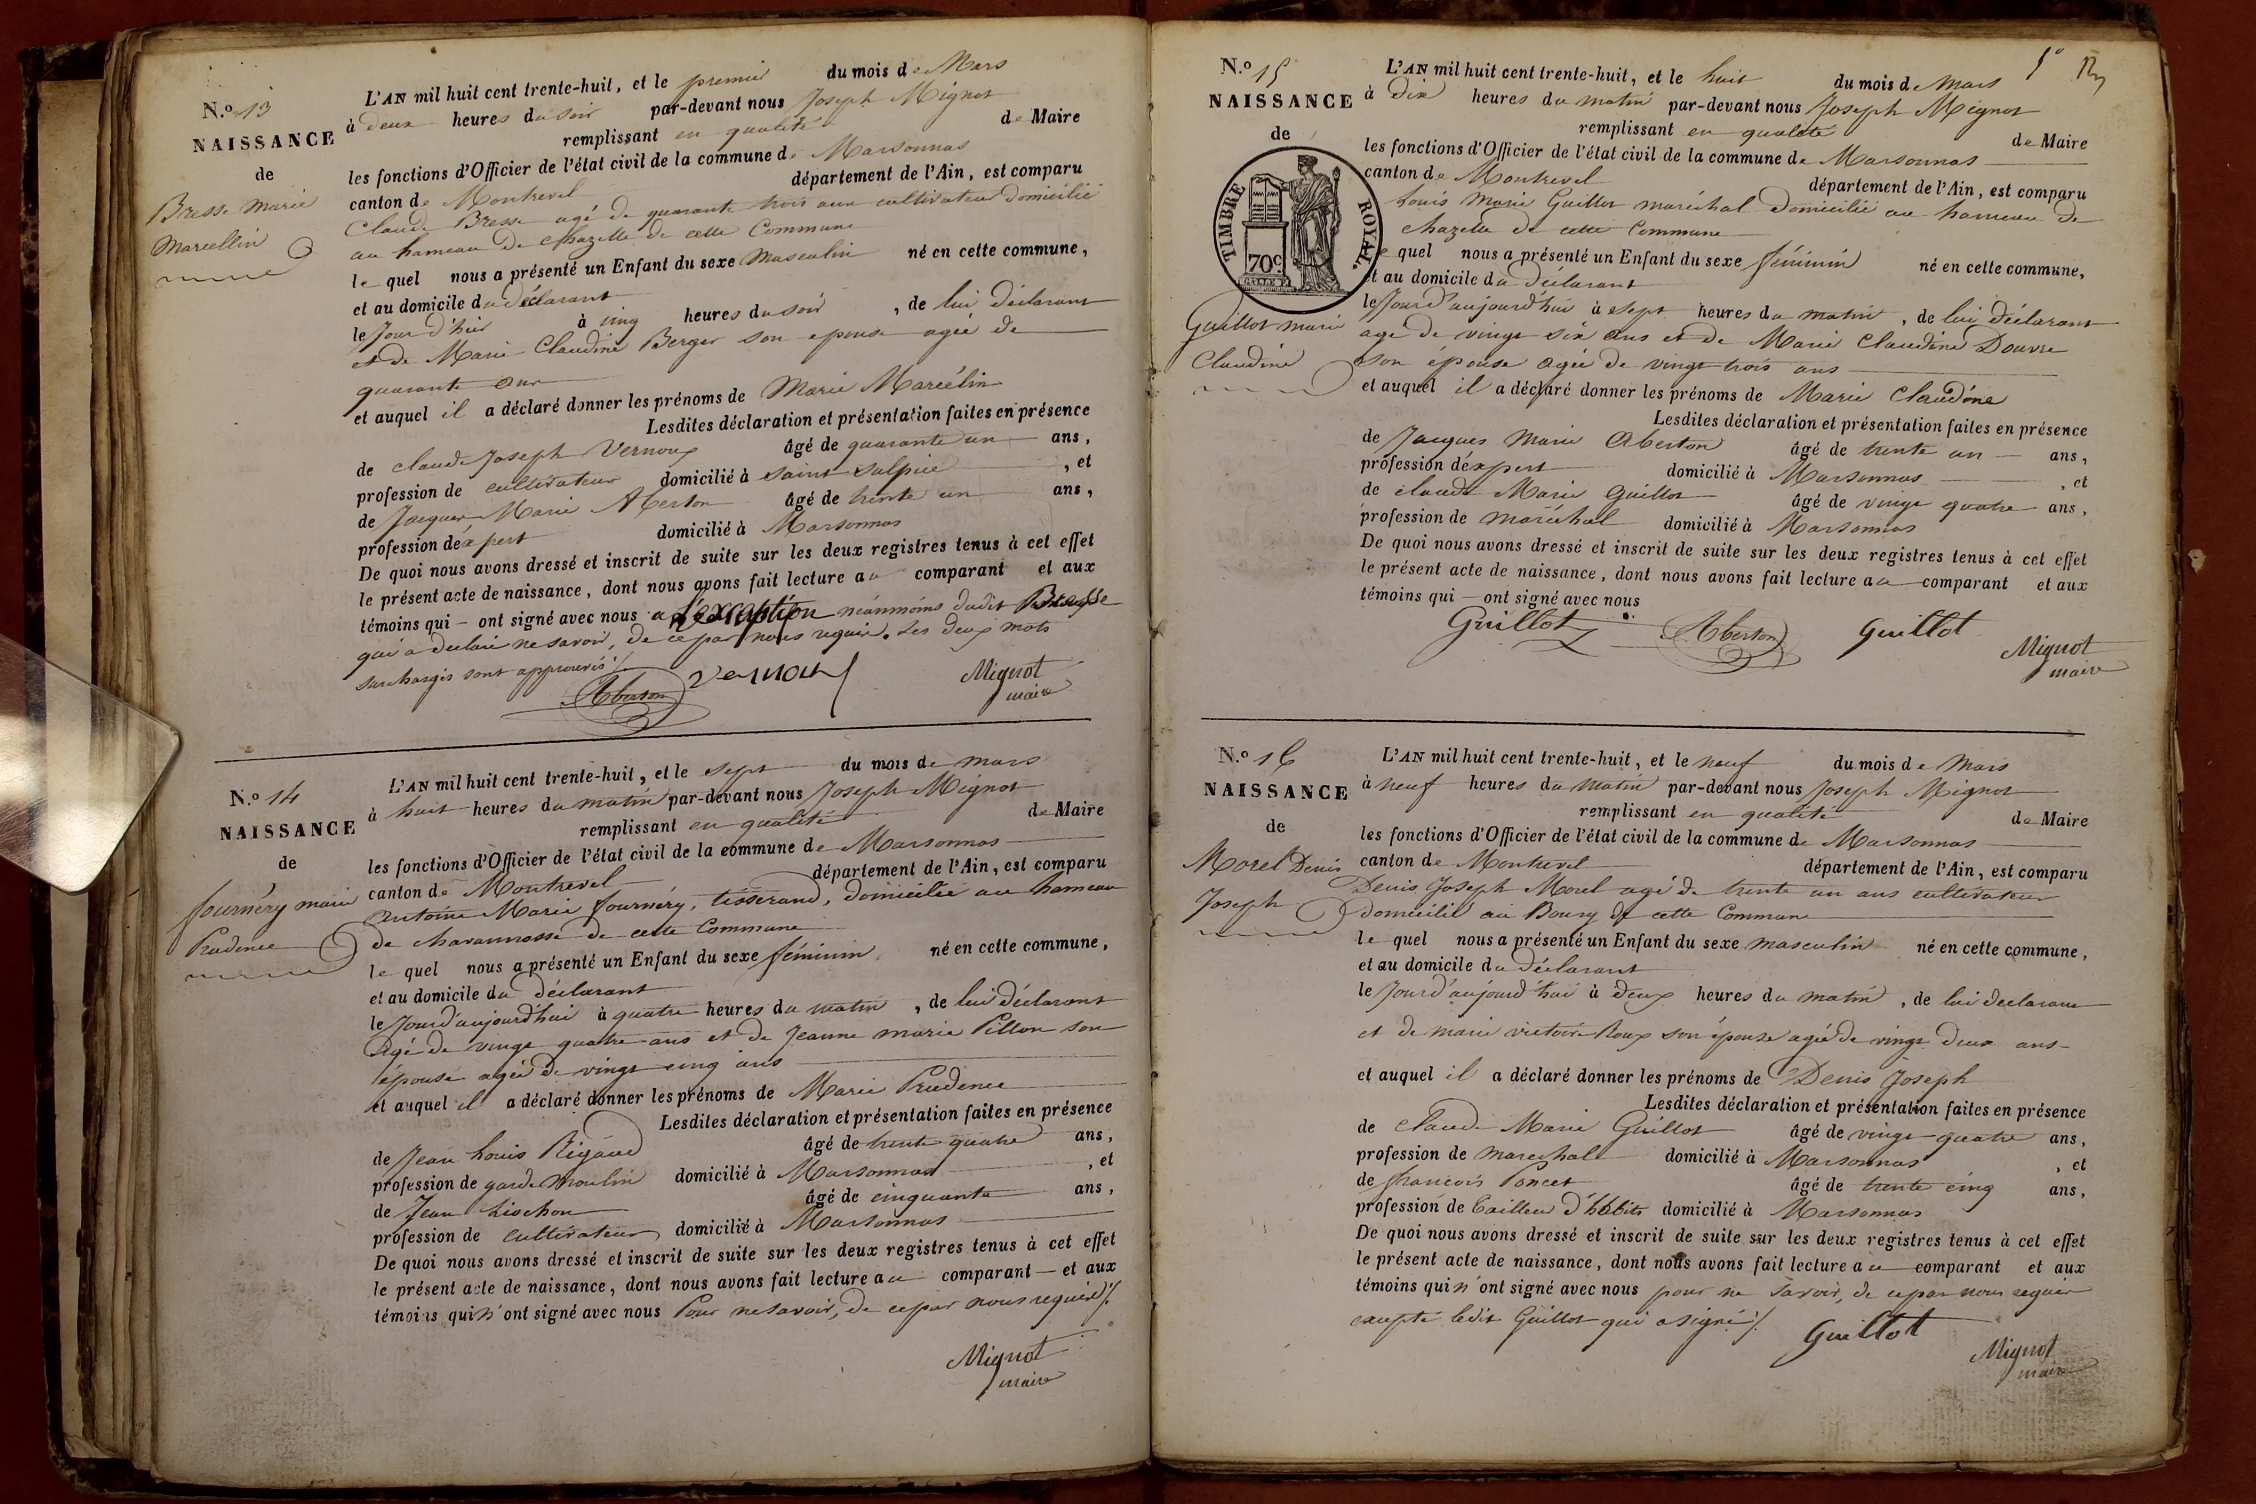 N.o 13
NAISSANCE
de
Bresse Marie
Marcellin
L'AN mil huit cent trente-huit, et le premier du mois de Mars
à deux heures du soir par-devant nous Joseph Mignot
remplissant en qualité de Maire
les fonctions d'Officier de l'état civil de la commune de Marsonnas
canton de Montrevel département de l'Ain, est comparu
Claude Bresse agé de quarante trois ans cultivateur domicilié
au hameau de Chazelle de cette Commune
le quel nous a présenté un Enfant du sexe Masculin né en cette commune,
et au domicile du déclarant
le Jour d'hier à cinq heures du soir, de lui déclarant
et de Marie Claudine Berger son epouse agée de
quarante ans
et auquel il a déclaré donner les prénoms de Marie Marcélin
Lesdites déclaration et présentation faites en présence
de claude Joseph Vernoux âgé de quarante un ans,
profession de cultivateur domicilié à saint sulpice, et
de Jacques Marie Aberton âgé de trente un ans,
profession d'éxpert domicilié à Marsonnas
De quoi nous avons dressé et inscrit de suite sur les deux registres tenus à cet effet
le présent acte de naissance, dont nous avons fait lecture au comparant et aux
témoins qui - ont signé avec nous a l'exception néanmoins dudit Bresse
qui a declaré ne savoir, de ce par nous requis. Les deux mots
surchargés sont approuvés /.
Aberton Vernoux Mignot
maire
N.o 14
NAISSANCE
de
fournéry marie
Prudence
L'AN mil huit cent trente-huit, et le sept du mois de mars
à huit heures du matin par-devant nous Joseph Mignot
remplissant en qualité de Maire
les fonctions d'Officier de l'état civil de la commune de Marsonnas
canton de Montrevel département de l'Ain, est comparu
antoine Marie fournéry, tisserand, domicilié au hameau
de chavannosse de cette Commune
le quel nous a présenté un Enfant du sexe féminin né en cette commune,
et au domicile du déclarant
le Jour d'aujourd'hui à quatre heures du matin, de lui déclarant
agé de vingt quatre ans et de Jeanne marie Pillon son
épouse agée de vingt cinq ans
et auquel il a déclaré donner les prénoms de Marie Prudence
Lesdites déclaration et présentation faites en présence
de Jean Louis Rigaud âgé de trente quatre ans,
profession de garde moulin domicilié à Marsonnas, et
de Jean Lischon âgé de cinquante ans,
profession de cultivateur domicilié à Marsonnas
De quoi nous avons dressé et inscrit de suite sur les deux registres tenus à cet effet
le présent acte de naissance, dont nous avons fait lecture au comparant - et aux
témoins qui n'ont signé avec nous Pour ne savoir, de ce par nous requis /.
Mignot
maire
5e
N.o 15
NAISSANCE
de
TIMBRE ROYAL.
70c
Guillot marie
Claudine
L'AN mil huit cent trente-huit, et le huit du mois de Mars
à Dix heures du matin par-devant nous Joseph Mignot
remplissant en qualité de Maire
les fonctions d'Officier de l'état civil de la commune de Marsonnas
canton de Montrevel département de l'Ain, est comparu
Louis Marie Guillot maréchal domicilié au hameau de
chazelle de cette Commune
le quel nous a présenté un Enfant du sexe féminin né en cette commune,
et au domicile du déclarant
le Jour d'aujourd'hui à sept heures du matin, de lui déclarant
agé de vingt six ans et de Marie Claudine Douvre
son epouse agée de vingt trois ans
et auquel il a déclaré donner les prénoms de Marie Claudine
Lesdites déclaration et présentation faites en présence
de Jacques Marie Aberton âgé de trente un ans,
profession d'éxpert domicilié à Marsonnas, et
de claude Marie Guillot âgé de vingt quatre ans,
profession de maréchal domicilié à Marsonnas
De quoi nous avons dressé et inscrit de suite sur les deux registres tenus à cet effet
le présent acte de naissance, dont nous avons fait lecture au comparant et aux
témoins qui - ont signé avec nous
Guillot Aberton Guillot Mignot
maire
N.o 16
NAISSANCE
de
Morel Denis
Joseph
L'AN mil huit cent trente-huit, et le neuf du mois de Mars
à neuf heures du matin par-devant nous Joseph Mignot
remplissant en qualité de Maire
les fonctions d'Officier de l'état civil de la commune de Marsonnas
canton de Montrevel département de l'Ain, est comparu
Denis Joseph Morel agé de trente un ans cultivateur
domicilié au Bourg de cette Commune
le quel nous a présenté un Enfant du sexe masculin né en cette commune,
et au domicile du déclarant
le Jour d'aujourd'hui à deux heures du matin, de lui déclarant
et de marie victoire Roux son épouse agée de vingt deux ans
et auquel il a déclaré donner les prénoms de Denis Joseph
Lesdites déclaration et présentation faites en présence
de claude Marie Guillot âgé de vingt quatre ans,
profession de marechal domicilié à Marsonnas, et
de francois Poncet âgé de trente cinq ans,
profession de tailleur d'habits domicilié à Marsonnas
De quoi nous avons dressé et inscrit de suite sur les deux registres tenus à cet effet
le présent acte de naissance, dont nous avons fait lecture au comparant et aux
témoins qui n'ont signé avec nous pour ne savoir, de ce par nous requis
excepté ledit Guillot qui a signé /.
Guillot Mignot
maire